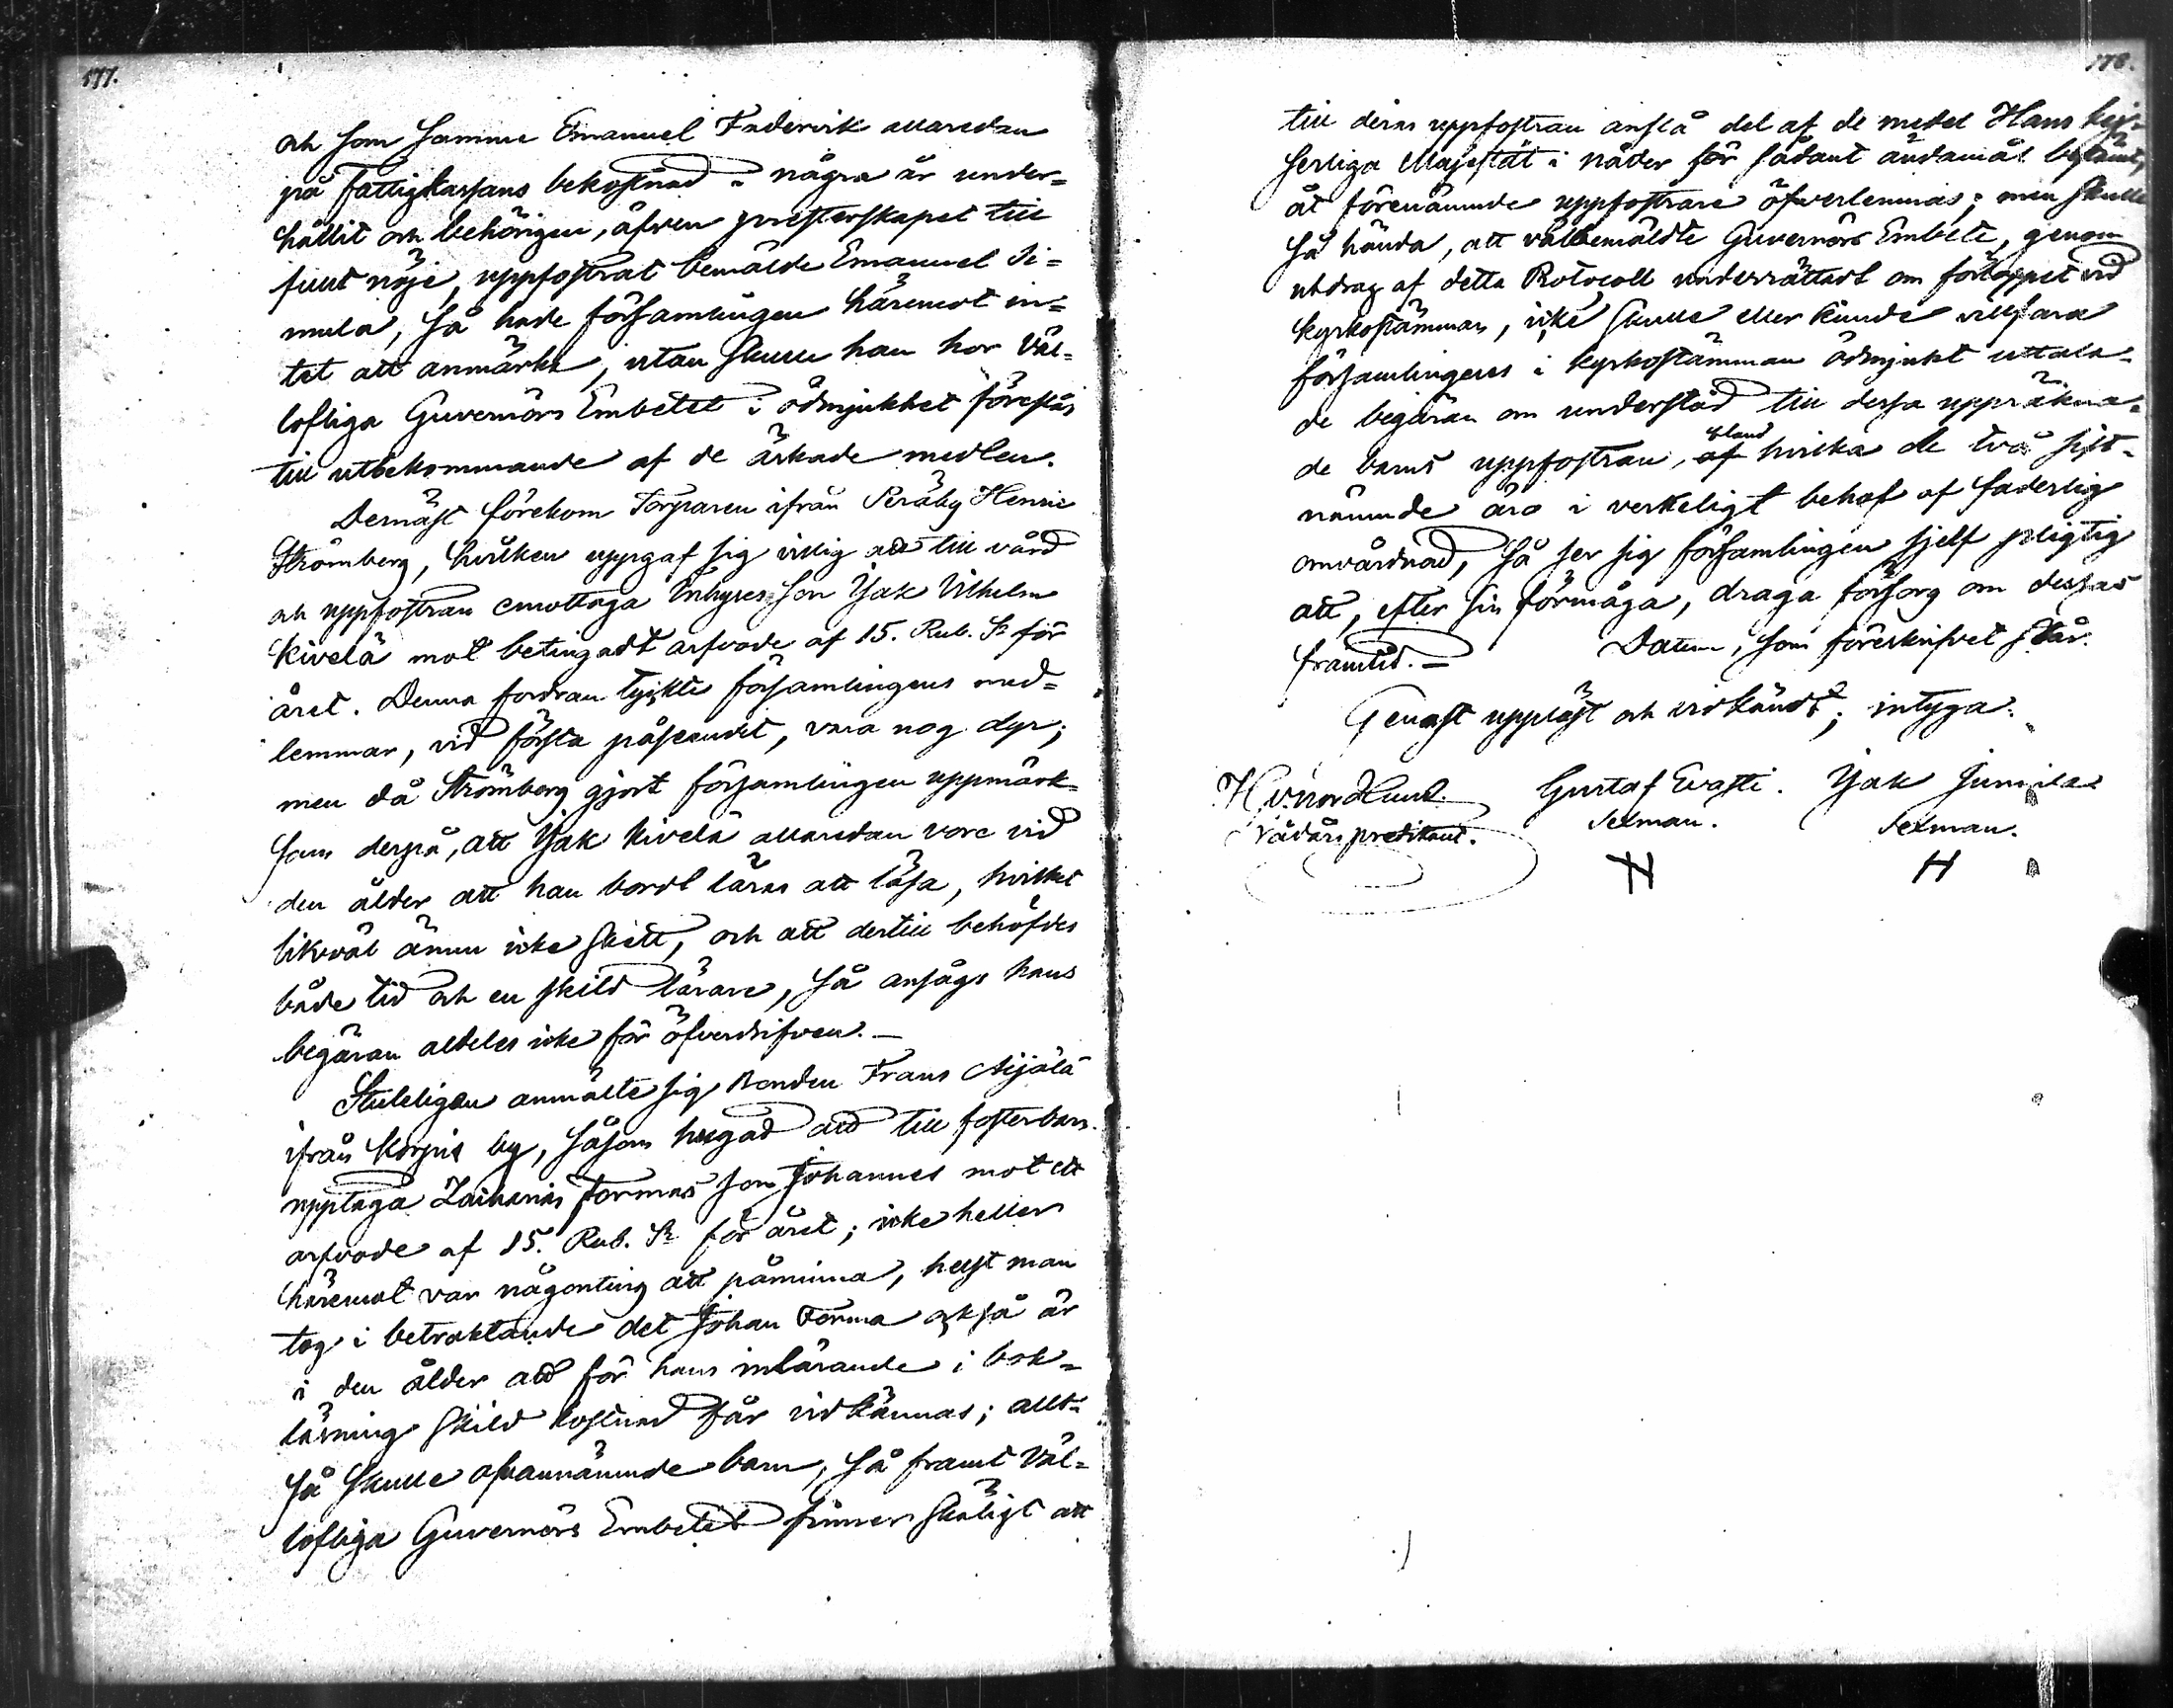 177.
och som samma Emanuel Frederick allaredan
på Fattigkassans bekostnad i några år under=
hållit och behörigen, äfven presterskapet till
fullt nöje, uppfostrat bemälde Emanuel Si=
mula, så hade församlingen häremot in=
tet att anmärka, utan skulle han hos Väl=
lofliga Guvernörs Embetet i ödmjukhet föreslås
till utbekommande af de äskade medlen.
Dernäst förekom Torparen ifrån Peräby Henric
Strömberg, hvilken uppgaf sig villig att till vård
och uppfostran emottaga Inhyses son Isak Vilhelm
Kivelä mot betingadt arfvode af 15. Rub. Sr för
året. Denna fordran tyckte församlingens med=
lemmar, vid första påseendet, vara nog dyr;
men då Strömberg gjort församlingen uppmärk=
sam derpå, att Isak Kivelä allaredan vore vid
den ålder att han bordt läras att läsa, hvilket
likväl ännu icke skett, och att dertill behöfdes
både tid och en skild lärare, så ansågs hans
begäran aldeles icke för öfverdrifven. —
Sluteligen anmälte sig Bonden Frans Äijälä
ifrån Korpis by, såsom hugad att till fosterbarn
upptaga Zacharias Formas son Johannes mot ett
arfvode af 15. Rub. Sr för året; icke heller
häremot var någonting att påminna, helst man
tog i betraktande det Johan Forma också är
i den ålder att för hans inlärande i bok=
läsning skild kostnad får vidkännas; allt=
så skulle ofvannämnde barn, så framt Väl=
lofliga Guvernörs Embetet finner skäligt att
178.
till deras uppfostran anslå del af de medel Hans Kej=
serliga Majestät i nåder för sådant ändamål bestämt,
åt förenämnde uppfostrare öfverlemnas; men skulle
så hända, att välbemäldte Guvernörs Embete, genom
utdrag af detta Protocoll underrättadt om förloppet vid
kyrkostämman, icke skulle eller kunde villfara
församlingens i kyrkostämman ödmjukt uttala=
de begäran om understöd till dessa uppräkna=
de barns uppfostran, af bland hvilka de två sist=
nämnde äro i verkeligt behof af faderlig
omvårdnad, så ser sig församlingen sjelf pligtig
att, efter sin förmåga, draga försorg om dessas
framtid. — Datum, som föreskrifvet står.
Genast uppläst och vidkändt; intyga:
Gustaf Erasti. Isak Junnila
Nådårs predikant. Sexman. Sexman.